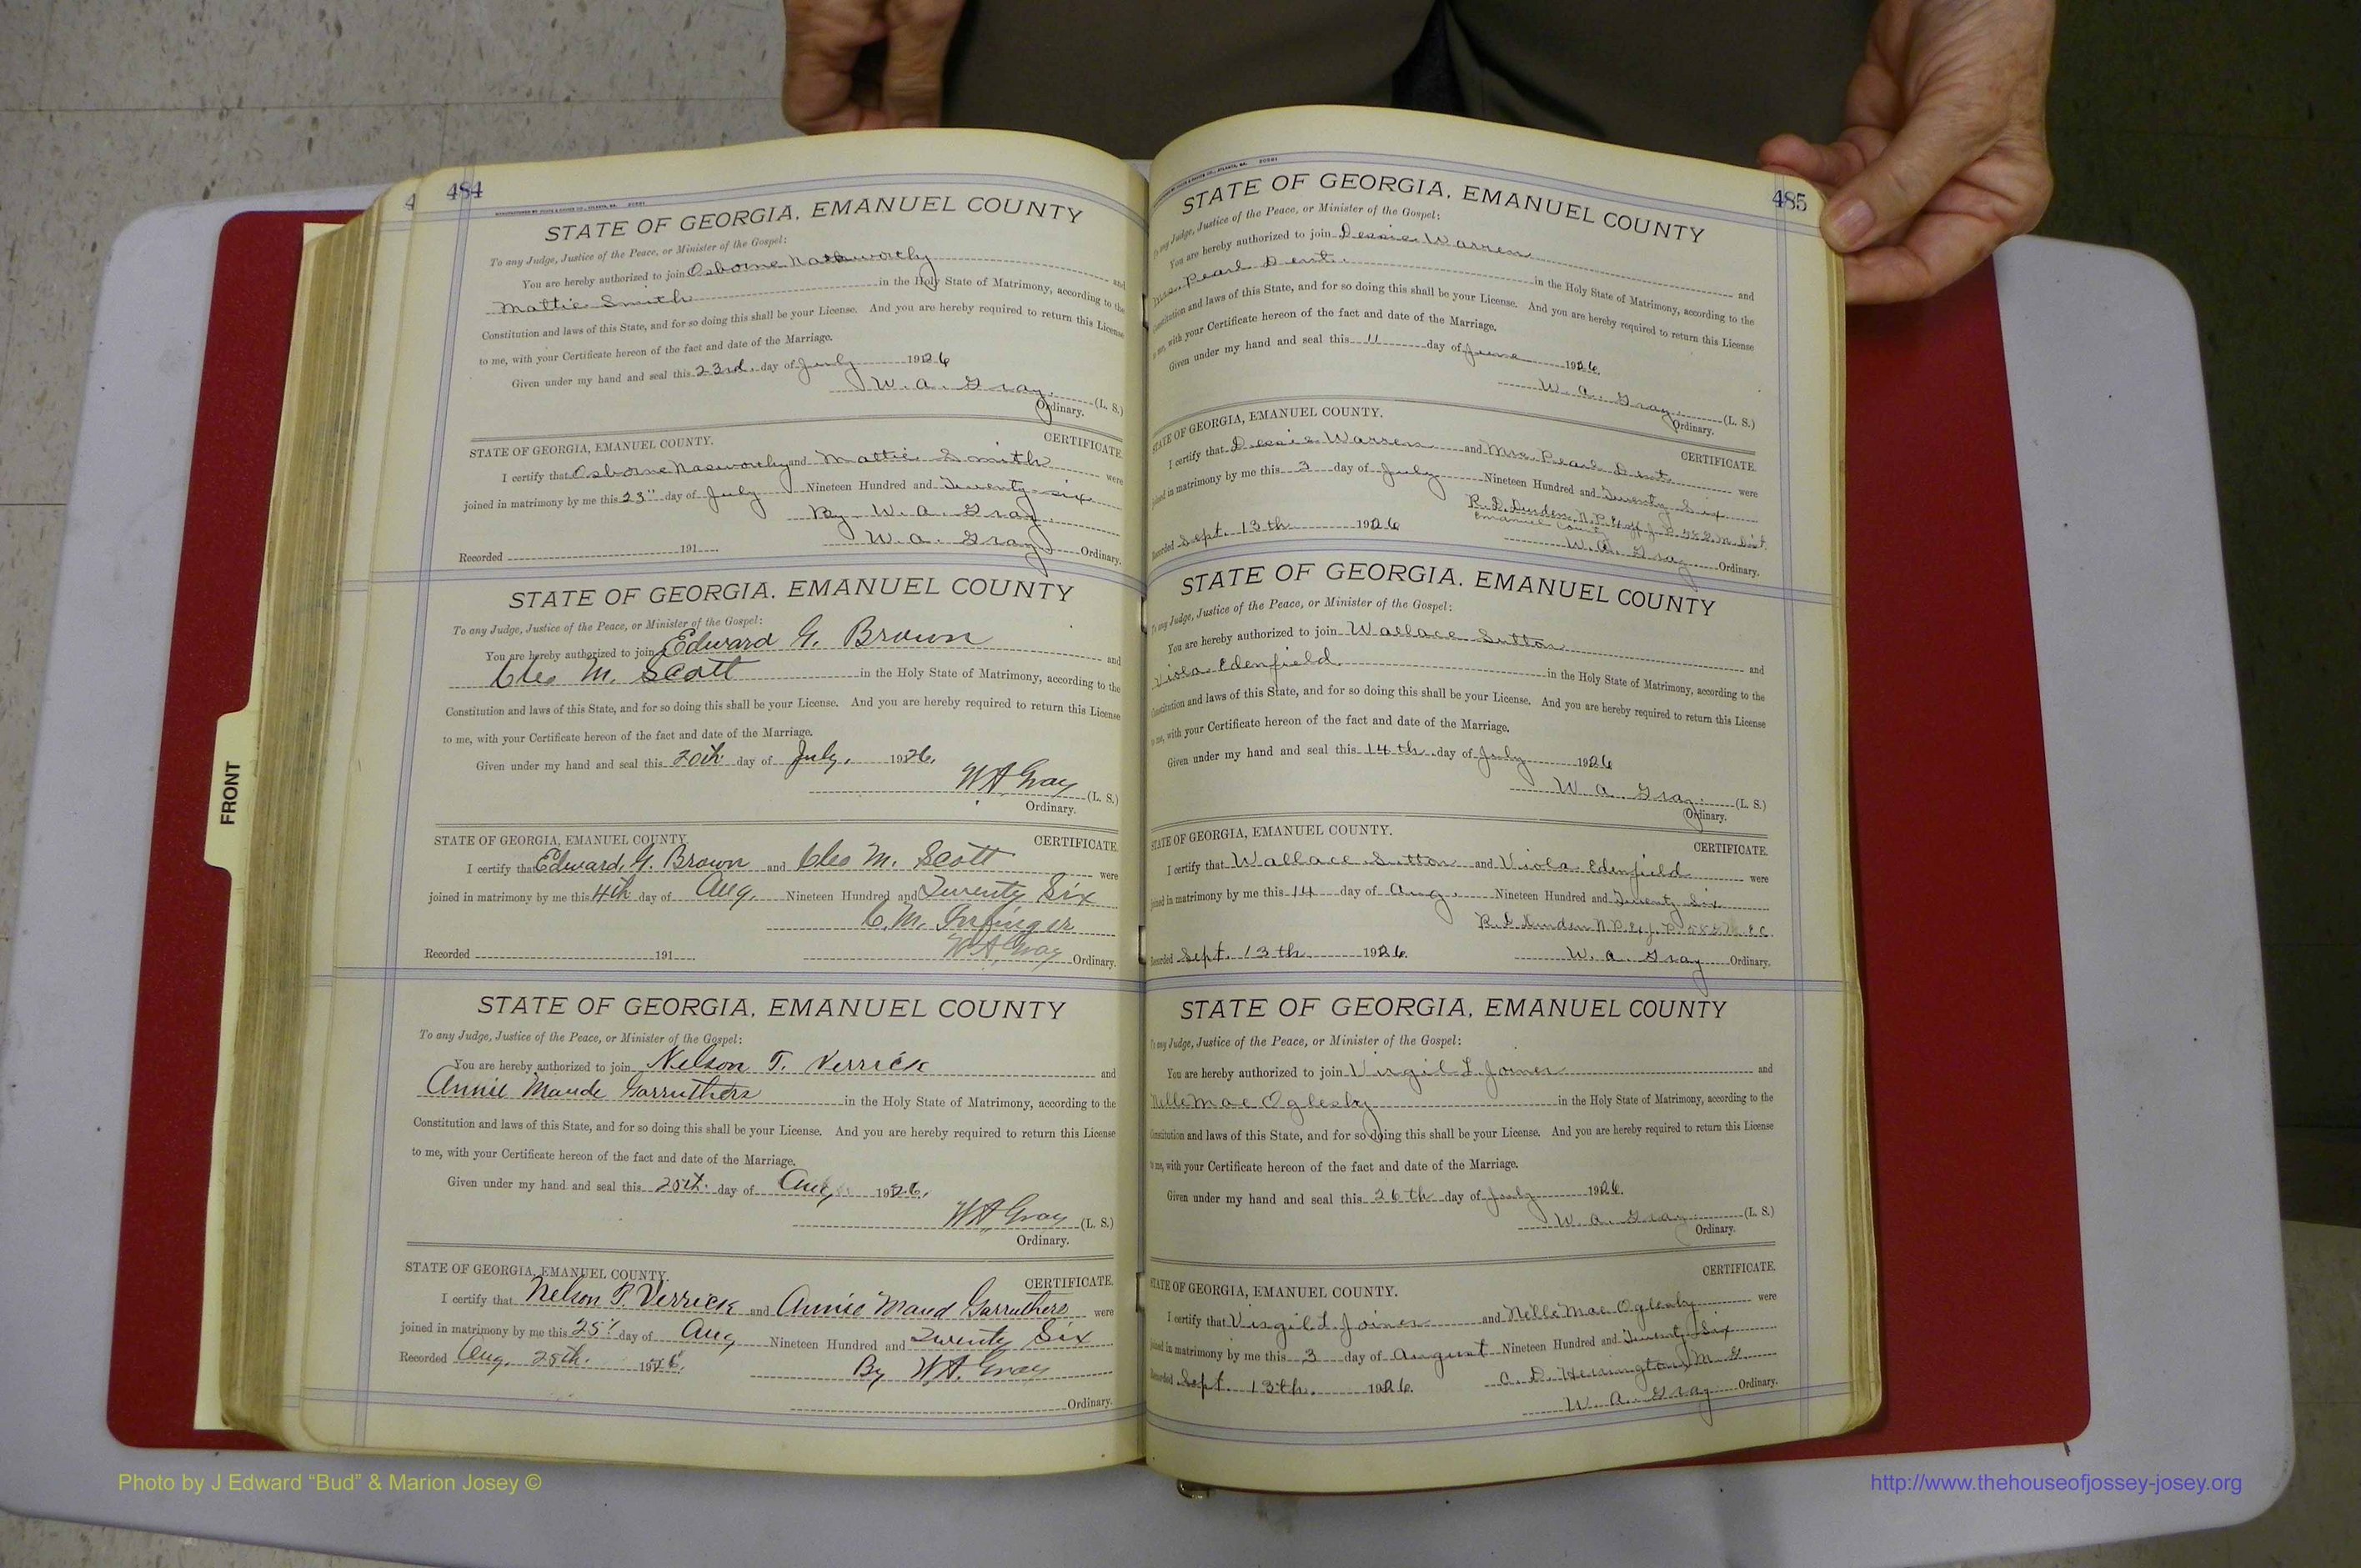 484
STATE OF GEORGIA, EMANUEL COUNTY
To any Judge, Justice of the Peace, or Minister of the Gospel:
You are hereby authorized to join Osborne Nasworthy and
Mattie Smith in the Holy State of Matrimony, according to the
Constitution and laws of this State, and for so doing this shall be your License. And you are hereby required to return this License
to me, with your Certificate hereon of the fact and date of the Marriage.
Given under my hand and seal this 23rd. day of July 1926
W. A. Gray. (L. S.)
Ordinary.
STATE OF GEORGIA, EMANUEL COUNTY. CERTIFICATE.
I certify that Osborne Nasworthy and Mattie Smith were
joined in matrimony by me this 23" day of July Nineteen Hundred and Twenty-six
By W. A. Gray.
Recorded 191 W. A. Gray Ordinary.
STATE OF GEORGIA, EMANUEL COUNTY
To any Judge, Justice of the Peace, or Minister of the Gospel:
You are hereby authorized to join Edward G. Brown and
Cleo M. Scott in the Holy State of Matrimony, according to the
Constitution and laws of this State, and for so doing this shall be your License. And you are hereby required to return this License
to me, with your Certificate hereon of the fact and date of the Marriage.
Given under my hand and seal this 20th day of July. 1926.
W A Gray (L. S.)
Ordinary.
STATE OF GEORGIA, EMANUEL COUNTY. CERTIFICATE.
I certify that Edward G. Brown and Cleo M. Scott were
joined in matrimony by me this 4th day of Aug. Nineteen Hundred and Twenty Six
C. M.
Recorded 191 W A Gray Ordinary.
STATE OF GEORGIA, EMANUEL COUNTY
To any Judge, Justice of the Peace, or Minister of the Gospel:
You are hereby authorized to join Nelson T. Verrick and
Annie Maude Garruthers in the Holy State of Matrimony, according to the
Constitution and laws of this State, and for so doing this shall be your License. And you are hereby required to return this License
to me, with your Certificate hereon of the fact and date of the Marriage.
Given under my hand and seal this 25th. day of Aug 1926.
W A Gray (L. S.)
Ordinary.
STATE OF GEORGIA, EMANUEL COUNTY. CERTIFICATE.
I certify that Nelson T. Verrick and Annie Maud Garruthers were
joined in matrimony by me this 25" day of Aug Nineteen Hundred and Twenty Six
Recorded Aug. 28th. 1926. By W. A. Gray
Ordinary.
485
STATE OF GEORGIA, EMANUEL COUNTY
To any Judge, Justice of the Peace, or Minister of the Gospel:
You are hereby authorized to join Dessie Warren and
Pearl Dent. in the Holy State of Matrimony, according to the
Constitution and laws of this State, and for so doing this shall be your License. And you are hereby required to return this License
to me, with your Certificate hereon of the fact and date of the Marriage.
Given under my hand and seal this 11 day of June 1926.
W. A. Gray. (L. S.)
Ordinary.
STATE OF GEORGIA, EMANUEL COUNTY. CERTIFICATE.
I certify that Dessie Warren and Mrs. Pearl Dent were
joined in matrimony by me this 3 day of July Nineteen Hundred and Twenty Six
R. D. Durden, N. P.
Emanuel County
Recorded Sept. 13th 1926 W. A. Gray Ordinary.
STATE OF GEORGIA, EMANUEL COUNTY
To any Judge, Justice of the Peace, or Minister of the Gospel:
You are hereby authorized to join Wallace Sutton and
Viola Edenfield in the Holy State of Matrimony, according to the
Constitution and laws of this State, and for so doing this shall be your License. And you are hereby required to return this License
to me, with your Certificate hereon of the fact and date of the Marriage.
Given under my hand and seal this 14th. day of July 1926
W. A. Gray. (L. S.)
Ordinary.
STATE OF GEORGIA, EMANUEL COUNTY. CERTIFICATE.
I certify that Wallace Sutton and Viola Edenfield were
joined in matrimony by me this 14 day of Aug. Nineteen Hundred and Twenty Six
R. D. Durden N. P.
Recorded Sept. 13th. 1926. W. A. Gray Ordinary.
STATE OF GEORGIA, EMANUEL COUNTY
To any Judge, Justice of the Peace, or Minister of the Gospel:
You are hereby authorized to join Virgil L. Joiner and
Nelle Mae Oglesby in the Holy State of Matrimony, according to the
Constitution and laws of this State, and for so doing this shall be your License. And you are hereby required to return this License
to me, with your Certificate hereon of the fact and date of the Marriage.
Given under my hand and seal this 26th day of July 1926.
W. A. Gray (L. S.)
Ordinary.
STATE OF GEORGIA, EMANUEL COUNTY. CERTIFICATE.
I certify that Virgil L. Joiner and Nelle Mae Oglesby were
joined in matrimony by me this 3 day of August Nineteen Hundred and Twenty Six
C. D. Herrington, M. G.
Recorded Sept. 13th. 1926. W. A. Gray Ordinary.
FRONT
Photo by J Edward “Bud” & Marion Josey ©
http://www.thehouseofjossey-josey.org